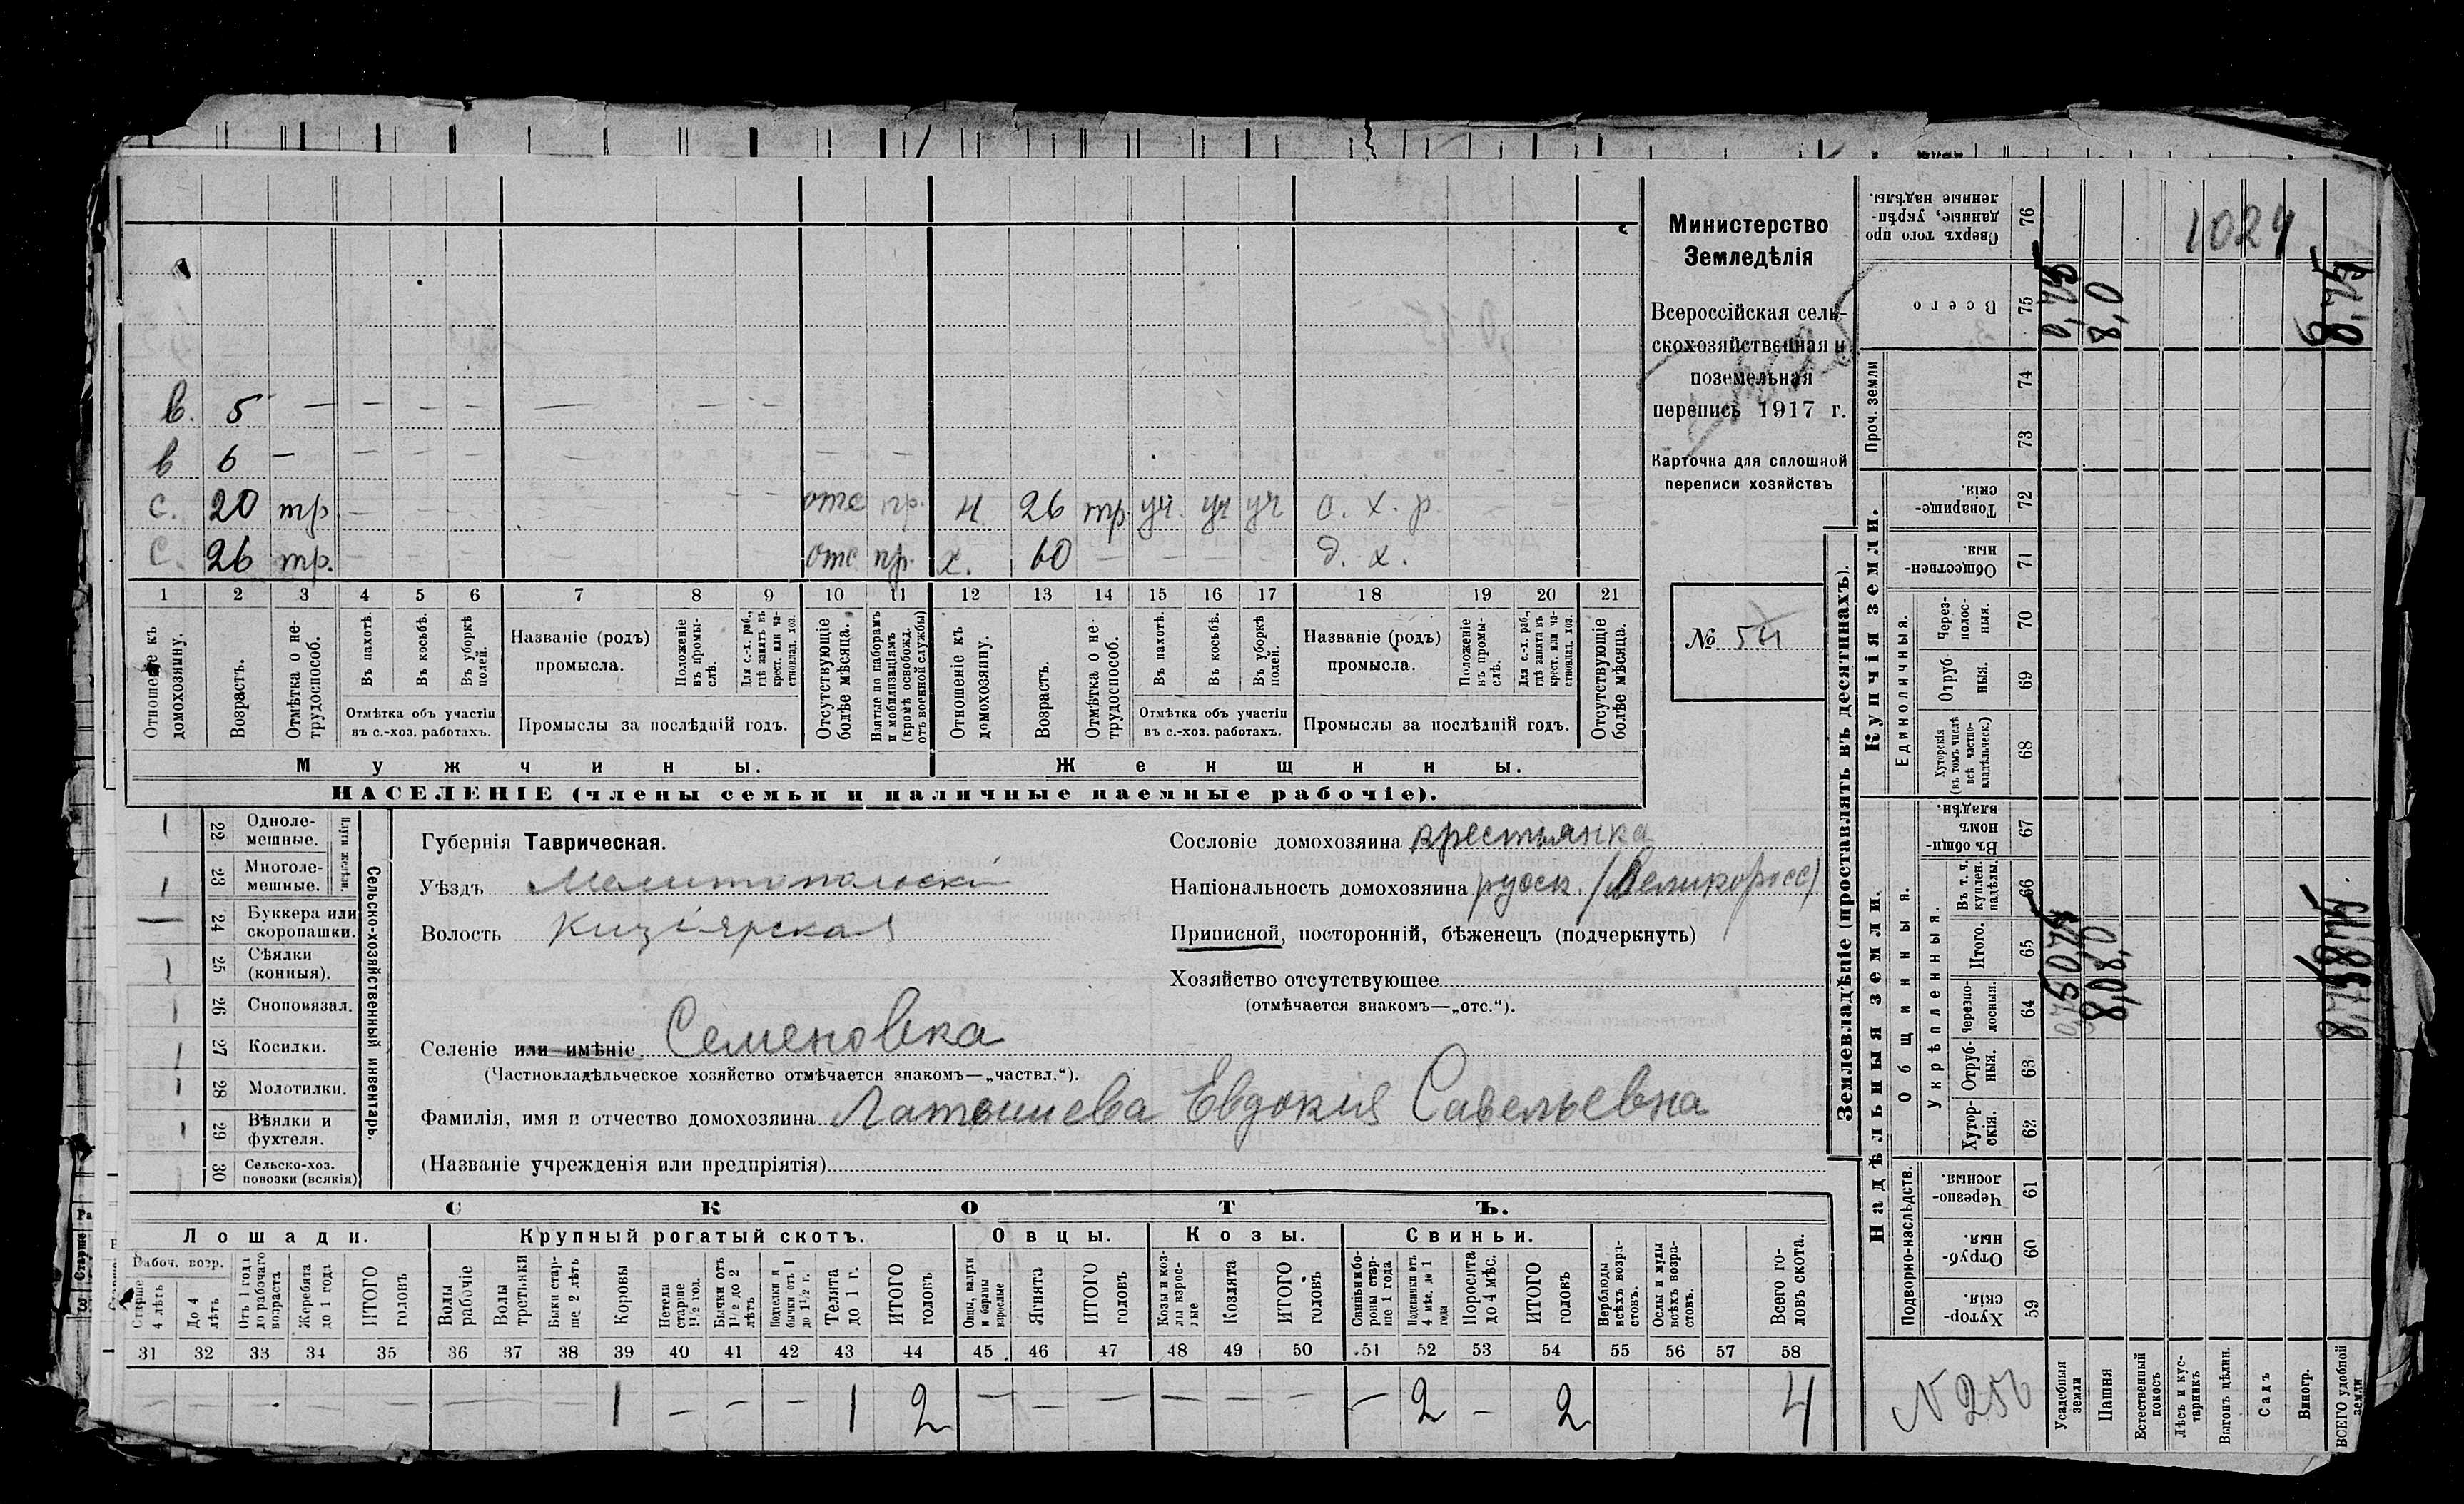 1024
Министерство
Земледѣлія
Всероссійская сель-
скохозяйственная и
поземельная
перепись 1917 г.
Карточка для сплошной
переписи хозяйствъ
№ 54
в. 5 — — — — — — —
в 6 — — — — — — — — —
с. 20 тр. — — — — — — отс пр. н 26 тр. уч. уч уч с. х. р. — —
с. 26 тр. — — — — — — отс пр. х. 60 — — — — д. х.
1 2 3 4 5 6 7 8 9 10 11 12 13 14 15 16 17 18 19 20 21
Отношеніе къ домохозяину.
Возрастъ.
Отмѣтка о не-трудоспособ.
Въ пахотѣ.
Въ косьбѣ.
Въ уборкѣ полей.
Отмѣтка объ участіи
въ с.-хоз. работахъ.
Названіе (родъ)
промысла.
Положеніе въ промы-слѣ.
Для с.-х. раб., гдѣ занятъ въ крест. или ча-стновлад. хоз.
Промыслы за послѣдній годъ.
Отсутствующіе болѣе мѣсяца.
Взятые по наборамъ и мобилизаціямъ (кромѣ освобожд. отъ военной службы)
Отношеніе къ домохозяину.
Возрастъ.
Отмѣтка о не-трудоспособ.
Въ пахотѣ.
Въ косьбѣ.
Въ уборкѣ полей.
Отмѣтка объ участіи
въ с.-хоз. работахъ.
Названіе (родъ)
промысла.
Положеніе въ промы-слѣ.
Для с.-х. раб., гдѣ занята въ крест. или ча-стновлад. хоз.
Промыслы за послѣдній годъ.
Отсутствующіе болѣе мѣсяца.
Мужчины. Женщины.
НАСЕЛЕНІЕ (члены семьи и наличные наемные рабочіе).
Сельско-хозяйственный инвентарь.
Плуги желѣзн.
1 22 Одноле-мешные.
1 23 Многоле-мешные.
— 24 Буккера или скоропашки.
1 25 Сѣялки (конныя).
1 26 Сноповязал.
1 27 Косилки.
1 28 Молотилки.
1 29 Вѣялки и фухтеля.
1 30 Сельско-хоз. повозки (всякія)
Губернія Таврическая.
Уѣздъ Мелитопольскі
Волость Кизіярская
Сословіе домохозяина крестьянка
Національность домохозяина русск. (Великоросс)
Приписной, посторонній, бѣженецъ (подчеркнуть)
Хозяйство отсутствующее
(отмѣчается знакомъ—„отс.“).
Селеніе или имѣніе Семеновка
(Частновладѣльческое хозяйство отмѣчается знакомъ—„частвл.“).
Фамилія, имя и отчество домохозяина Латышева Евдокия Савельевна
(Названіе учрежденія или предпріятія)
СКОТЪ.
Лошади. Крупный рогатый скотъ. Овцы. Козы. Свиньи.
Рабоч. возр.
Старше 4 лѣтъ
До 4 лѣтъ
Отъ 1 года до рабочаго возраста
Жеребята до 1 года
ИТОГО головъ
Волы рабочіе
Волы третьяки
Быки стар-ше 2 лѣтъ
Коровы
Нетели старше 1½ год.
Бычки отъ 1½ до 2 лѣтъ
Подтелки и бычки отъ 1 до 1½ г.
Телята до 1 г.
ИТОГО головъ
Овцы, валухи и бараны взрослые
Ягнята
ИТОГО головъ
Козы и коз-лы взрос-лые
Козлята
ИТОГО головъ
Свиньи и бо-ровы стар-ше 1 года
Подсвинки отъ 4 мѣс. до 1 года
Поросята до 4 мѣс.
ИТОГО головъ
Верблюды всѣхъ возра-стовъ.
Ослы и мулы всѣхъ возра-стовъ.
Всего го-ловъ скота.
31 32 33 34 35 36 37 38 39 40 41 42 43 44 45 46 47 48 49 50 51 52 53 54 55 56 57 58
— — — — — — — — 1 — — — 1 2 — — — — — — — 2 — 2 4
Землевладѣніе (проставлять въ десятинахъ).
Купчія земли.
Надѣльныя земли.
Сверхъ того про данные, укрѣп-ленные надѣлы. 76
Всего 75
Проч. земли 74 73
Товарище-скія. 72
Обществен-ныя. 71
Единоличныя.
Через-полос-ныя. 70
Отруб-ныя. 69
Хуторскія (въ томъ числѣ всѣ частно-владѣльческ.) 68
Общинныя.
Въ общи-номъ владѣн. 67
Укрѣпленныя.
Въ т. ч. куплен. надѣлы. 66
Итого. 65
Черезпо-лосныя. 64
Отруб-ныя. 63
Хутор-скія. 62
Подворно-наслѣдств.
Черезпо-лосныя. 61
Отруб-ныя. 60
Хутор-скія. 59
8,0
N 256
Усадебныя земли
Пашня
Естественный покосъ
Лѣсъ и кус-тарникъ
Выгонъ цѣлин.
Садъ
Виногр.
ВСЕГО удобной земли